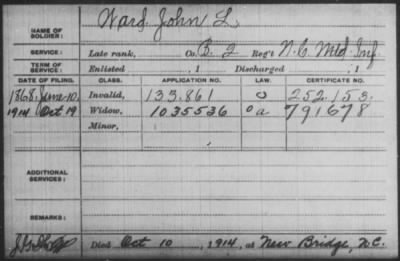 NAME OF SOLDIER: Ward, John L.
SERVICE: Late rank, Co. B. 2 Reg't N.C. Mtd. Inf.
TERM OF SERVICE: Enlisted , 1 Discharged , 1
DATE OF FILING. CLASS. APPLICATION NO. LAW. CERTIFICATE NO.
1868, June 10. Invalid, 133.861 O 252.153.
1914 Oct 19 Widow, 1035536 O a. 791678
Minor,
ADDITIONAL SERVICES:
REMARKS:
Died Oct 10, 1914, at New Bridge, N.C.